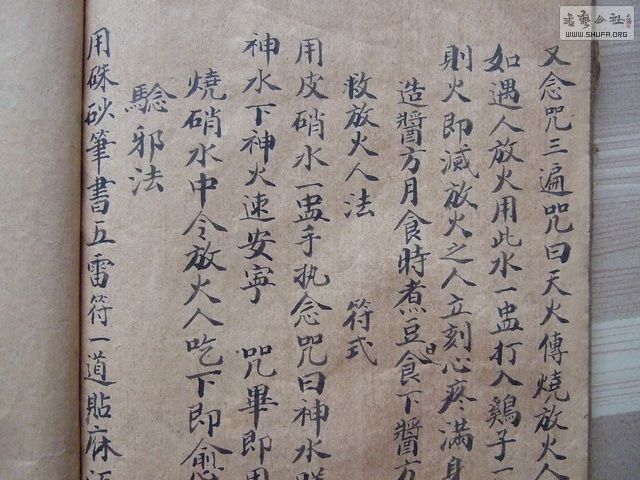 又念咒三遍咒曰天火傳燒放火人
如遇人放火用此水一盅打入鷄子一
則火即滅放火之人立刻心疼滿身
造醬方月食時煮豆日食下醬方
救放火人法 符式
用皮硝水一盅手执念咒曰神水
神水下神火速安寧 咒畢即用
燒硝水中令放火人吃下即愈
驗邪法
用硃砂筆書五雷符一道貼麻
WWW.SHUFA.ORG